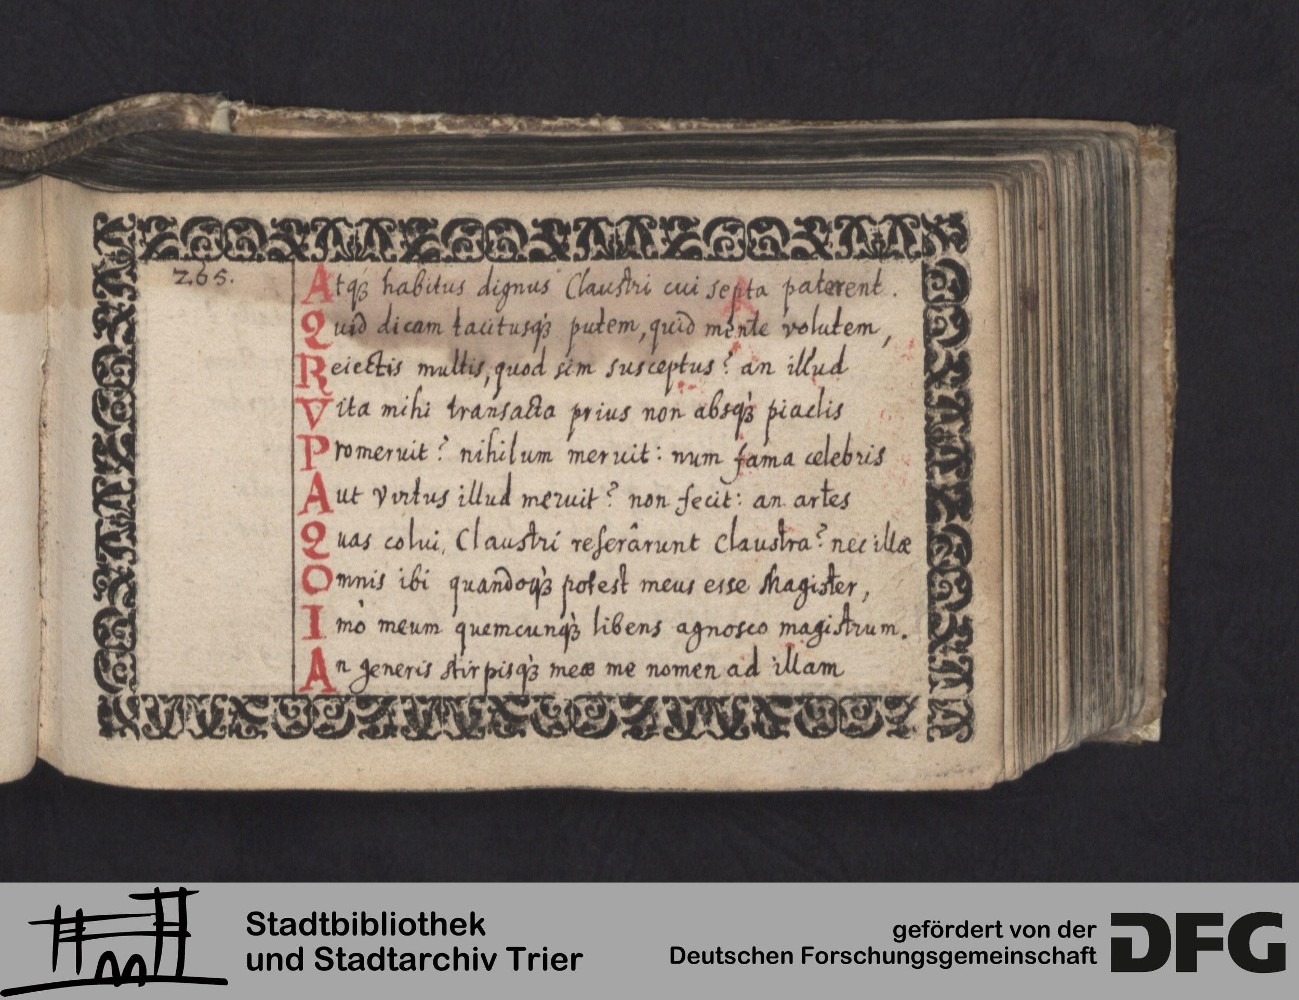 265.
Atq́; habitus dignus Claustri cui septa paterent.
Quid dicam tacitusq́; putem, quid mente volutem,
Reiectis multis, quod sim susceptus? an illud
Vita mihi transacta prius non absq́; piaclis
Promeruit? nihilum meruit: num fama celebris
Aut virtus illud meruit? non fecit: an artes
Quas colui, Claustri reserârunt claustra? nec illæ
Omnis ibi quandoq́; potest meus esse Magister,
Imò meum quemcunq́; libens agnosco magistrum.
An generis stirpisq́; meæ me nomen ad illam
Stadtbibliothek
und Stadtarchiv Trier
gefördert von der
Deutschen Forschungsgemeinschaft
DFG